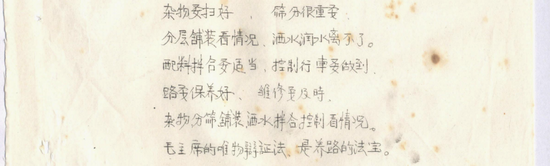 杂物要扫好，筛分很重要
分层铺装看情况、洒水润水离不了。
配料拌合要适当、控制行車要做到
路要保养好、维修要及时
杂物分筛铺装洒水拌合控制看情况。
毛主席的唯物辩证法、是养路的法宝。